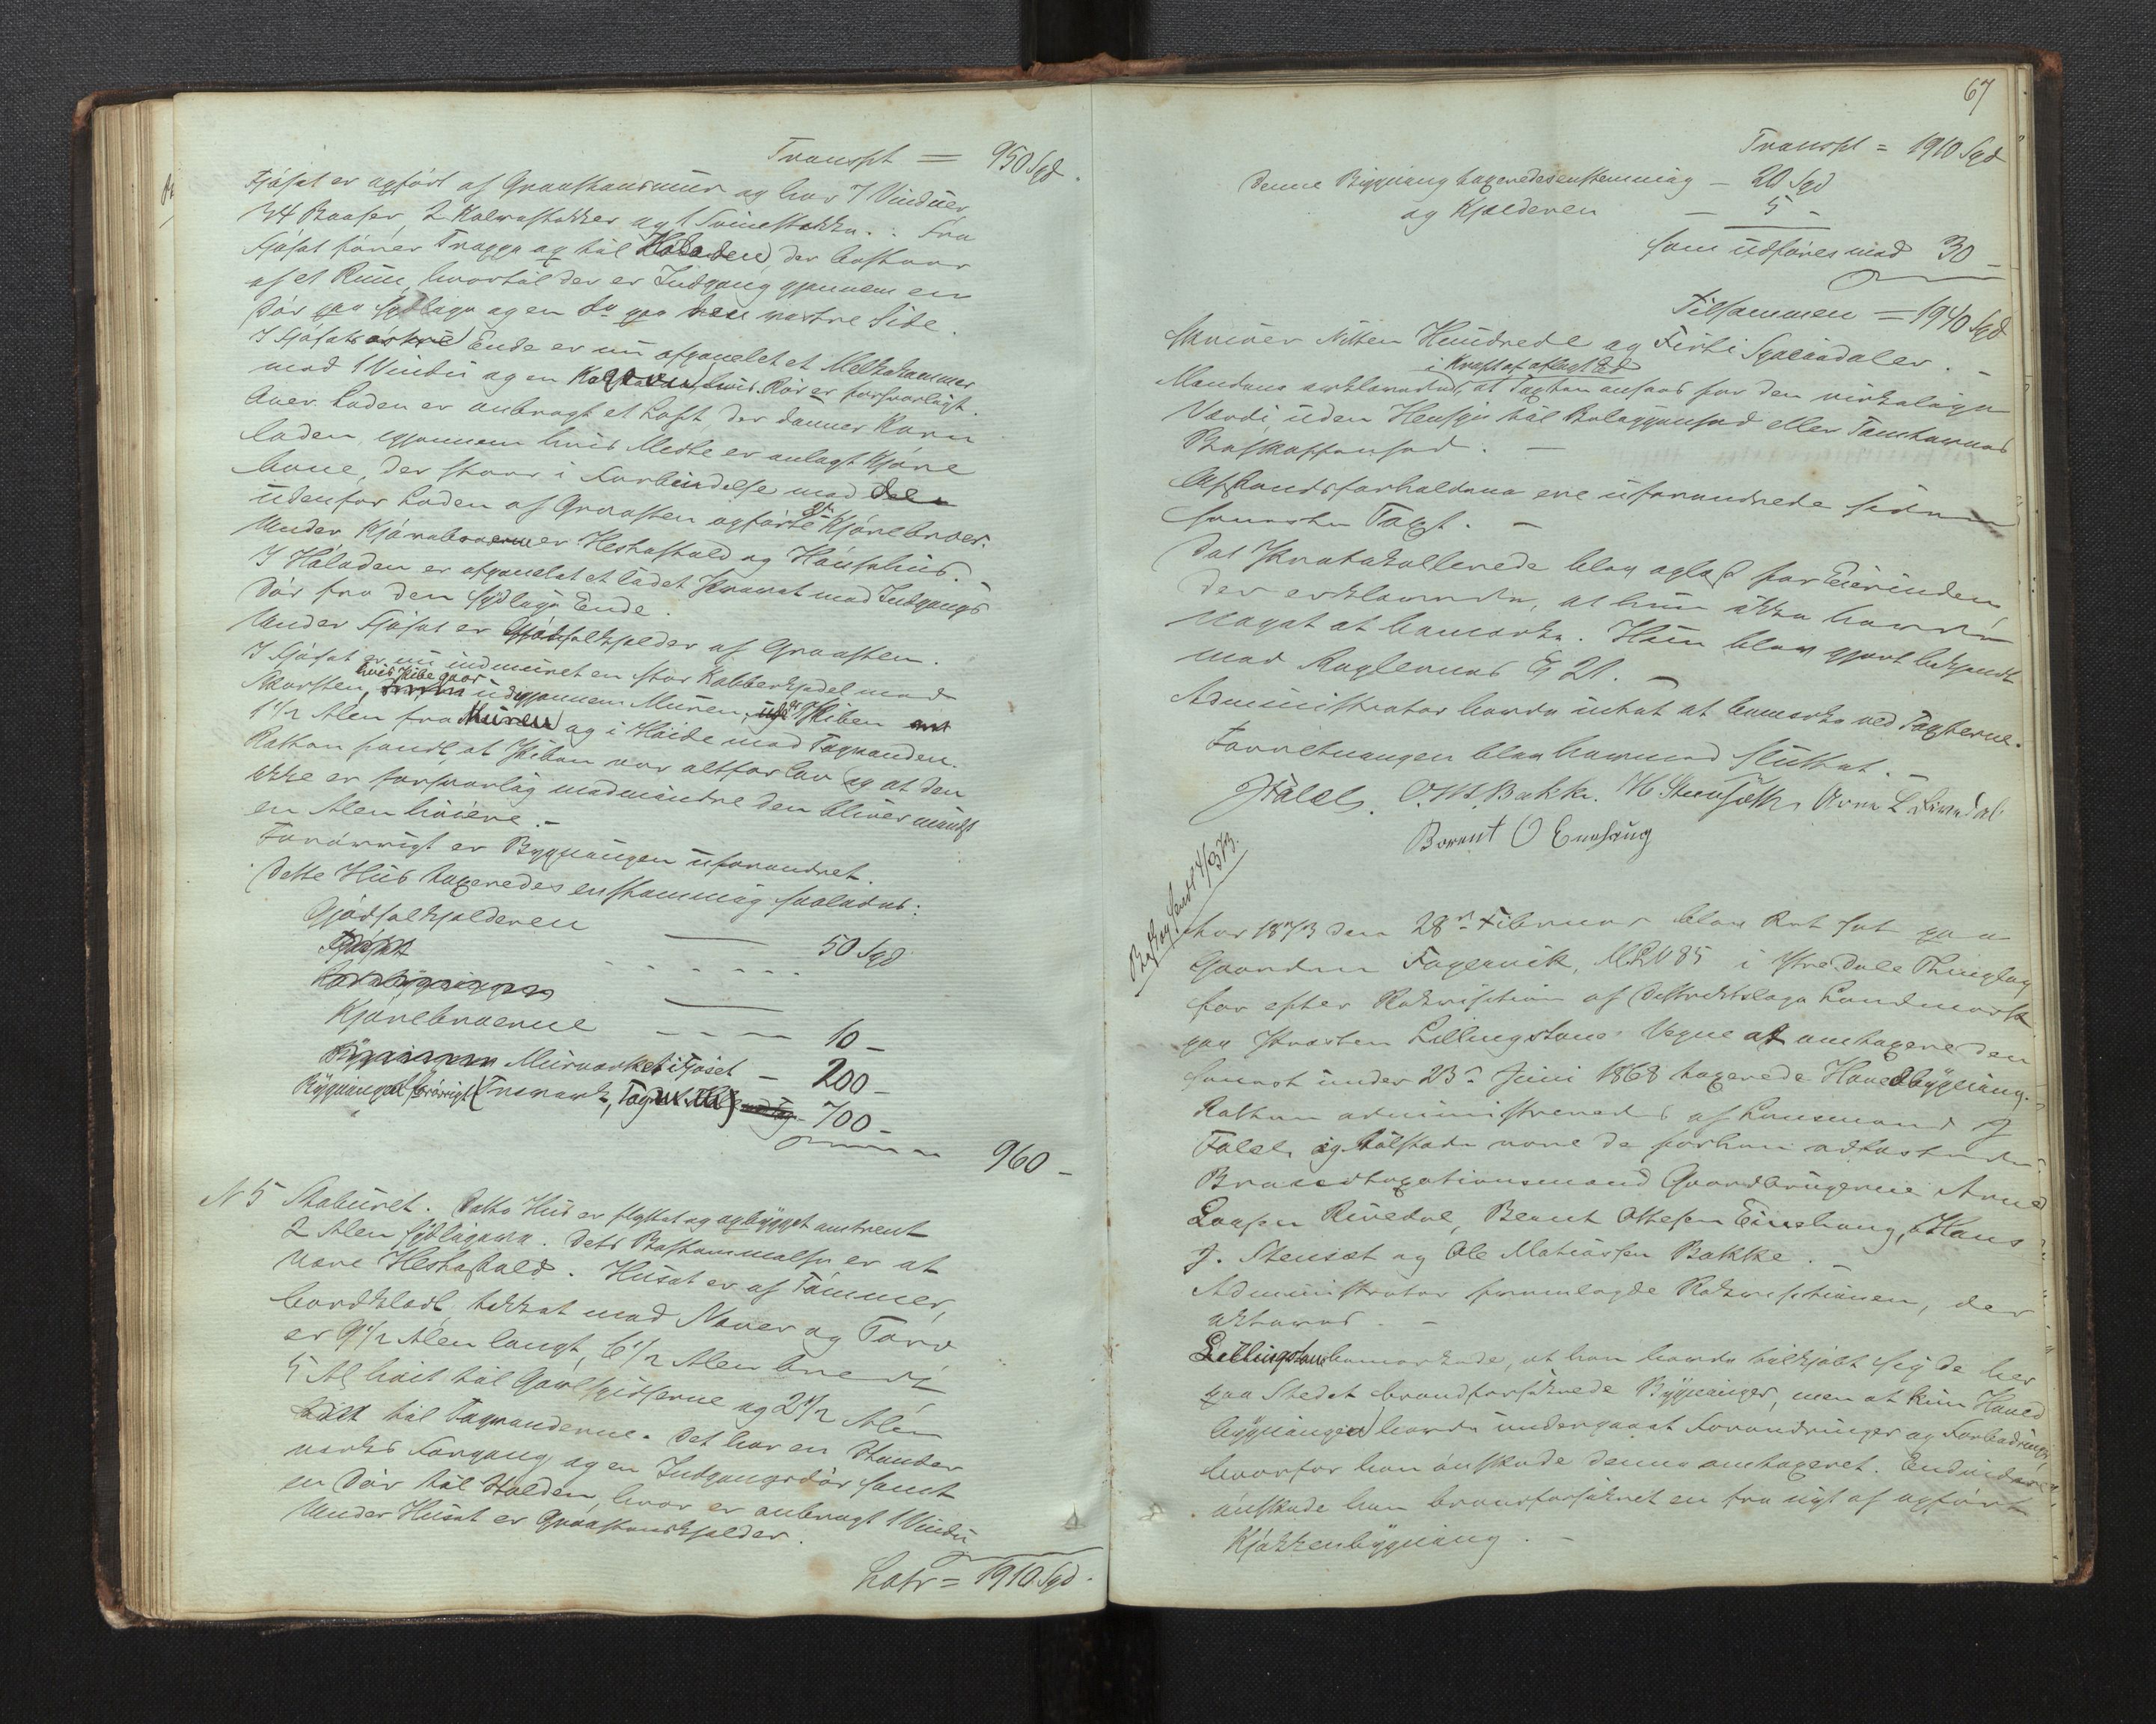 Transpt = 950 Spd.
Fjøset er opført af Graastensmur og har 7 Vinduer,
34 Baaser, 2 Kalvestakker og 1 Svinestakke. Fra
Fjøset fører Trappe op til Høladen, der bestaar
af et Rum, hvortil der er Indgang gjennem en
Dør paa sydlige og en do paa den vestre Side.
I Fjøsets østre Ende er nu afpanelet et Melkekammer
med 1 Vindu og en hvis Rør er forsvarligt.
Over Laden er anbragt et Loft, der danner Korn
laden, gjennem hvis Midte er anlagt Kjøre
bane, der staar i Forbindelse med de
udenfor Laden af Graasten opførte Kjørebroer.
Under Kjørebroerne er Hestestald og Hønsehus.
I Høladen er afpanelet et lidet Privat med Indgangs
Dør fra den sydlige Ende.
Under Fjøset er Gjødselkjelder af Graasten.
I Fjøset er nu indmuret en stor Kobberkjedel med
Skorsten, hvis Pibe gaar ud gjennem Muren, Piben
1 1/2 Alen fra Muren og i Høide med Tagranden.
Retten fandt, at Piben var altfor lav og at den
ikke er forsvarlig medmindre den bliver mindst
en Alen høiere. -
Forøvrigt er Bygningen uforandret.
Dette Hus taxeredes enstemmig saaledes:
Gjødselkjelderen — 50 Spd
Kjørebroerne — 10 -
Murværket i Fjøset — 200 -
Bygningen forøvrigt (Træværk, Tag — 700 -
960 -
N 5 Staburet. Dette Hus er flyttet og opbygget omtrent
2 Alen sydligere. Dets Bestemmelse er at
være Hestestald. Huset er af Tømmer,
bordklædt, tækket med Næver og Torv
er 9 1/2 Alen langt, 6 1/2 Alen bredt
5 Al høit til Gavlspidserne og 2 1/2 Alen
høit til Tagranderne. Det har en Stander
verks Forgang og en Indgangsdør samt
en Dør til Stalden, hvor er anbragt 1 Vindu
Under Huset er Graastenskjelder.
Latr = 1910 Spd.
67
Transpt = 1910 Spd
Denne Bygning taxeredes enstemmig — 20 Spd
og Kjelderen — 5 -
som udføres med 30 -
Tilsammen = 1940 Spd
skriver Nitten Hundrede og Firti Speciedaler. -
i Kraft af aflagt Ed
Mændene erklærede, at Taxten ansees for den virkelige
Værdi uden Hensyn til Beliggenhed eller Tomternes
Beskaffenhed. -
Afstandsforholdene ere uforandrede siden
seneste Taxt. -
Det Protokollerede blev oplæst for Eierinden
der erklærede, at hun ikke havde
Noget at bemærke. Hun blev gjort bekjendt
med Reglernes § 21. -
Administrator havde intet at bemærke ved Taxterne.
Forretningen blev hermed sluttet. -
J Falch. O. M. Bakke. H Stensæth Arne L
Berent O Enehaug
Beskrev. sendt 4/3 73.
Aar 1873 den 28de Februar blev Ret sat paa
Gaarden Fagervik, M. No 85 i Ytredale Thinglag
for efter Rekvisition af Distriktslæge Landmark
paa Presten Lillingstons Vegne at omtaxere den
senest under 23de Juni 1868 taxerede Hovedbygning.
Retten administreredes af Lensmand J
Falch, og tilstede vare de forhen edfæstede
Brandtaxationsmænd Gaardbrugerne Arne
Larsen Rivedal, Berent Ottesen Einehaug, Hans
J. Stensæt og Ole Mathiassen Bakke. -
Administrator fremlagde Rekvisitionen, der
akteres. -
Lillingston bemærkede, at han havde tilkjøbt sig de her
paa Stedet brandforsikrede Bygninger, men at kun Hoved
bygningen havde undergaaet Forandringer og Forbedringer
hvorfor han ønskede denne omtaxeret. Endvidere
ønskede han brandforsikret en fra nyt af opført
Kjøkkenbygning. -